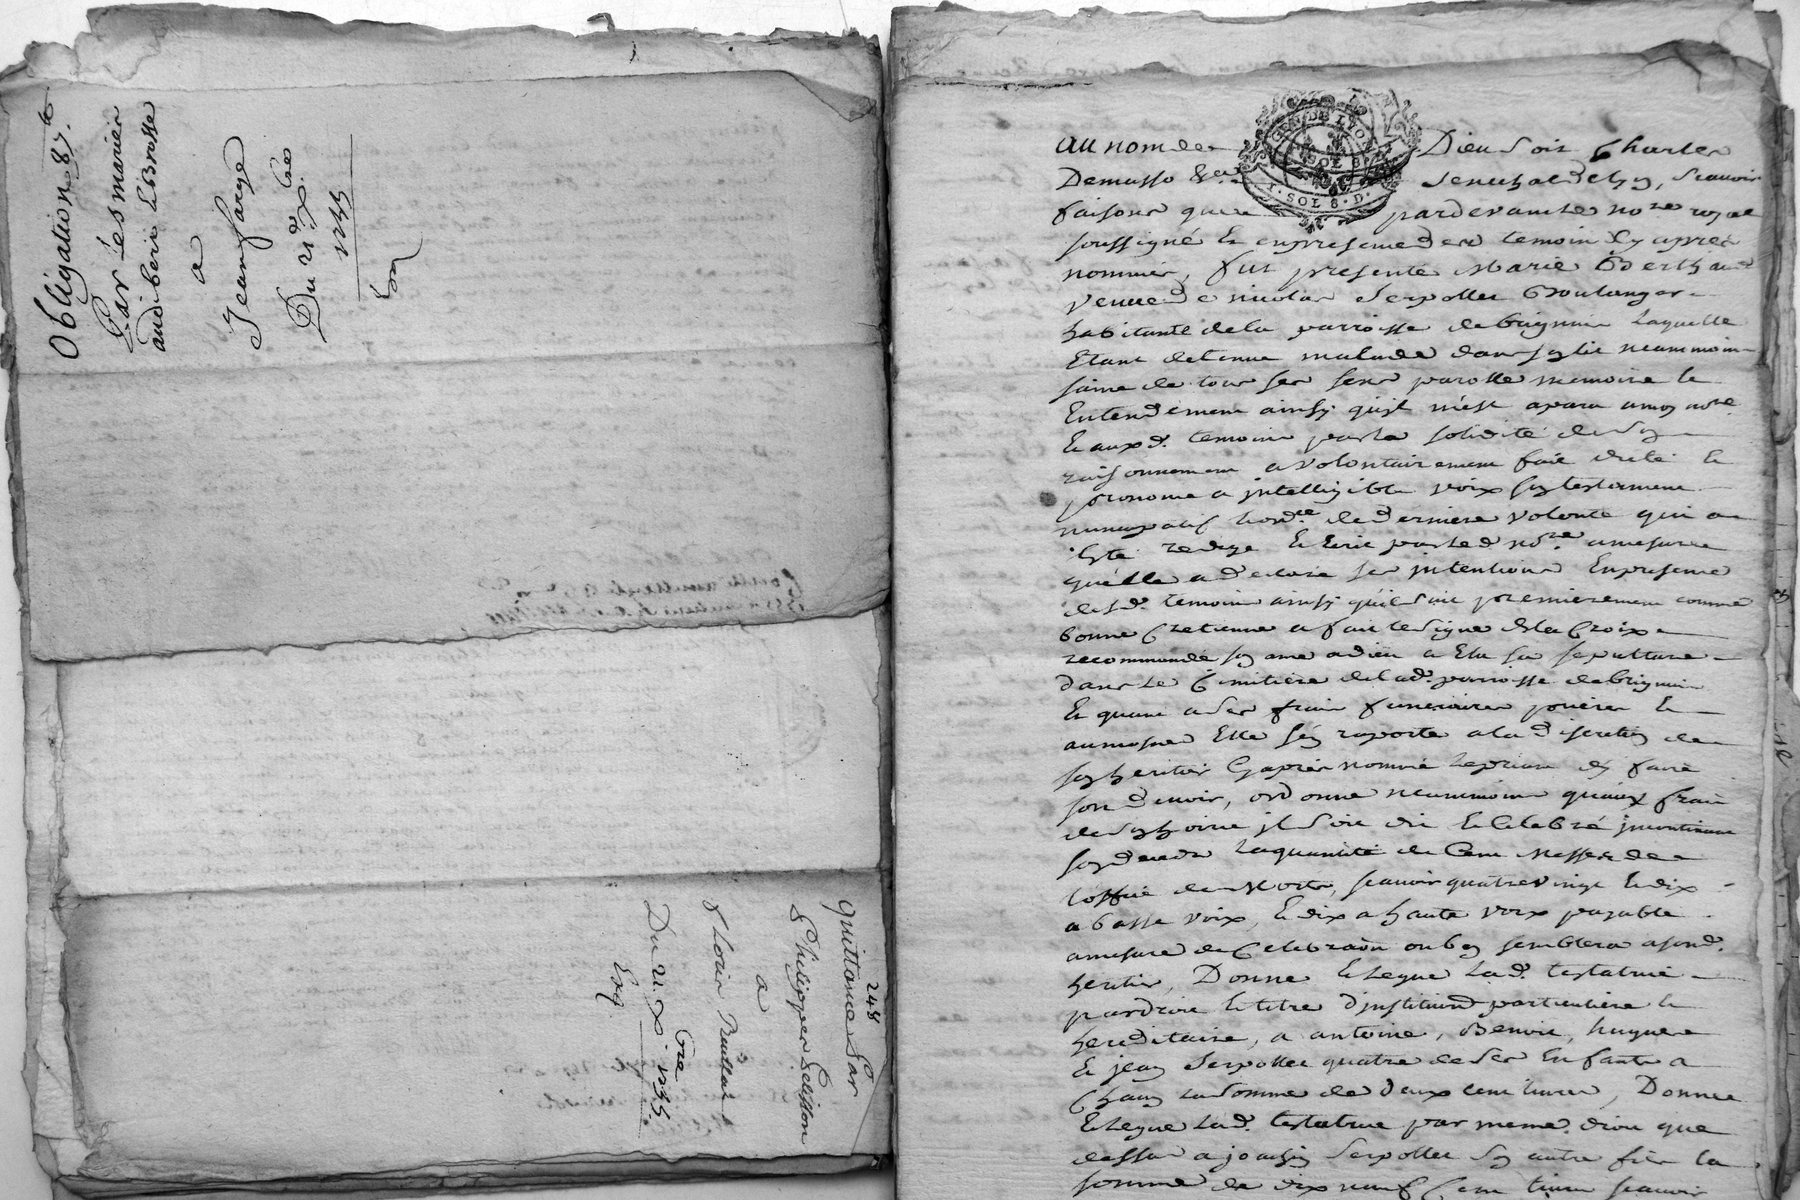 Obligation 87.lt
Par les mariés
audibert Labrosse
a
Jean farge
Du 21 d. xbre
1735
248
quittance Par
Philipper Pelisson
a
Du 21. xbre 1735.
Exq.
GEN DE LYON
SOL 8
1. SOL 8. D.
au nom de Dieu soit Charles
Demasso &ca senechal de lyon, scavoir
faisons que pardevant Le nore royal
soussigné Et en presence des temoins Cy apres
nommés, fut presente Marie Berthaud
veuve de nicolas Serpollet Boulanger
habitante de la parroisse de brignais Laquelle
Etant detenue malade dans son lit neammoins
saine de tous ses sens parolle memoire Et
Entendement ainsy qu'il n'est aparu a moy nore
Et auxd. temoins par la solidité de son
raisonnement a volontairement fait dicté Et
prononcé a intelligible voix son testament
nuncupatif Et ord.ce de derniere volonté qui a
Esté redigé Et Ecrit par led nore a mesure
quelle a declaré ses intentions En presence
desd. temoins ainsy qu'il suit premierement comme
bonne Cretienne a fait le signe de la Croix
recommandé son ame a dieu a Elu sa sepulture
dans Le Cimitiere de lad. parroisse de brignais
Et quant a ses frais funeraires prieres Et
aumosnes Elle s'en raporte a la discretion de
son heritier Cy aprés nommé Le priant d'en faire
son devoir, ordonne neammoins qu'aux frais
de son hoirie il soit dit Et Celebré incontinant
son decedz La quantité de Cent Messes de
l'office des Morts, scavoir quatrevingt Et dix
a basse voix, Et dix a haute voix payable
a mesure de Celebraôn ou bon semblera a sond.
heritier, Donne Et Legue Lad. testatrice
par droit Et titre d'institution particuliere Et
hereditaire, a antoine, Benoit, huguer
Et jean Serpollet quatre de ses Enfants a
Chacun La somme de deux cent livres, Donne
Et Legue Lad. testatrice par meme droit que
dessus a Serpollet son autre fils La
somme de dix neuf Cent livres scavoir